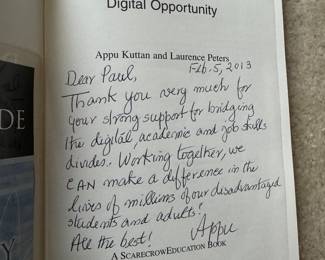 Digital Opportunity
Appu Kuttan and Laurence Peters
Feb. 5, 2013
Dear Paul,
Thank you very much for
your strong support for bridging
the digital, academic and job skills
divides. Working together, we
CAN make a difference in the
lives of millions of our disadvantaged
students and adults!
All the best! Appu
A SCARECROWEDUCATION BOOK
DE
Y